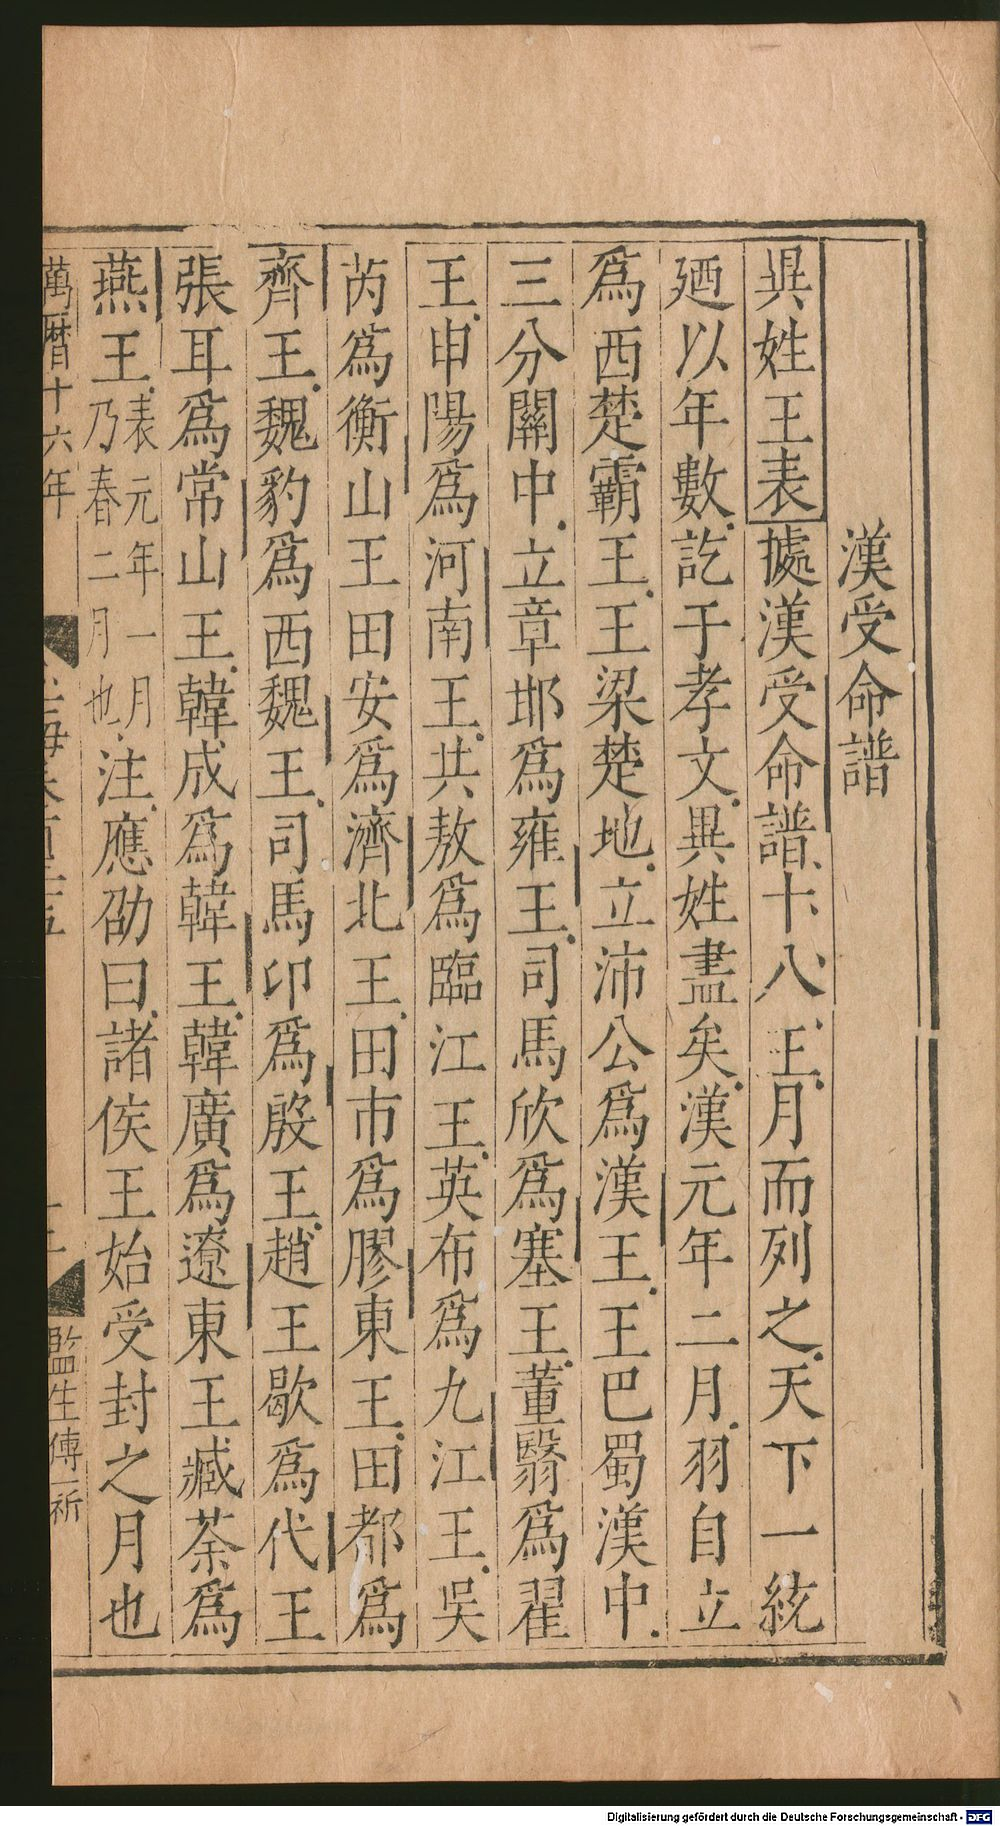 漢受命譜
異姓王表據漢受命譜十八王月而列之天下一統
廼以年數訖于孝文異姓盡矣漢元年二月羽自立
爲西楚霸王王梁楚地立沛公爲漢王王巴蜀漢中
三分關中立章邯爲雍王司馬欣爲塞王董翳爲翟
王申陽爲河南王共敖爲臨江王英布爲九江王吳
芮爲衡山王田安爲濟北王田市爲膠東王田都爲
齊王魏豹爲西魏王司馬卬爲殷王趙王歇爲代王
張耳爲常山王韓成爲韓王韓廣爲遼東王臧荼爲
燕王表元年一月
乃春二月也注應劭曰諸侯王始受封之月也
萬曆十六年
監生傅一祈
Digitalisierung gefördert durch die Deutsche Forschungsgemeinschaft - DFG